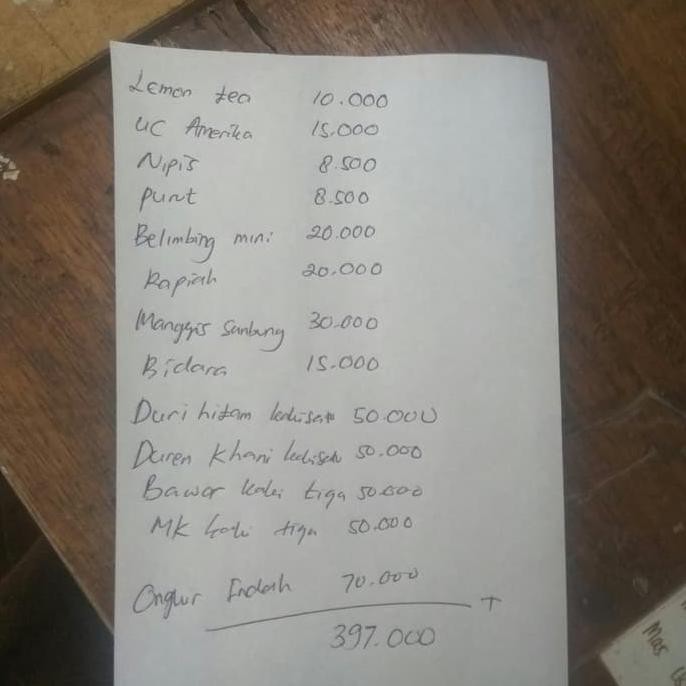 Lemon tea 10.000
UC Amerika 15.000
Nipis 8.500
Purut 8.500
Belimbing mini 20.000
Rapiah 20.000
Manggis Sambung 30.000
Bidara 15.000
Duri hitam kaki satu 50.000
Duren Khani kaki satu 50.000
Bawor kaki tiga 50.000
MK kaki tiga 50.000
Ongkir Indah 70.000
+
397.000
Mas